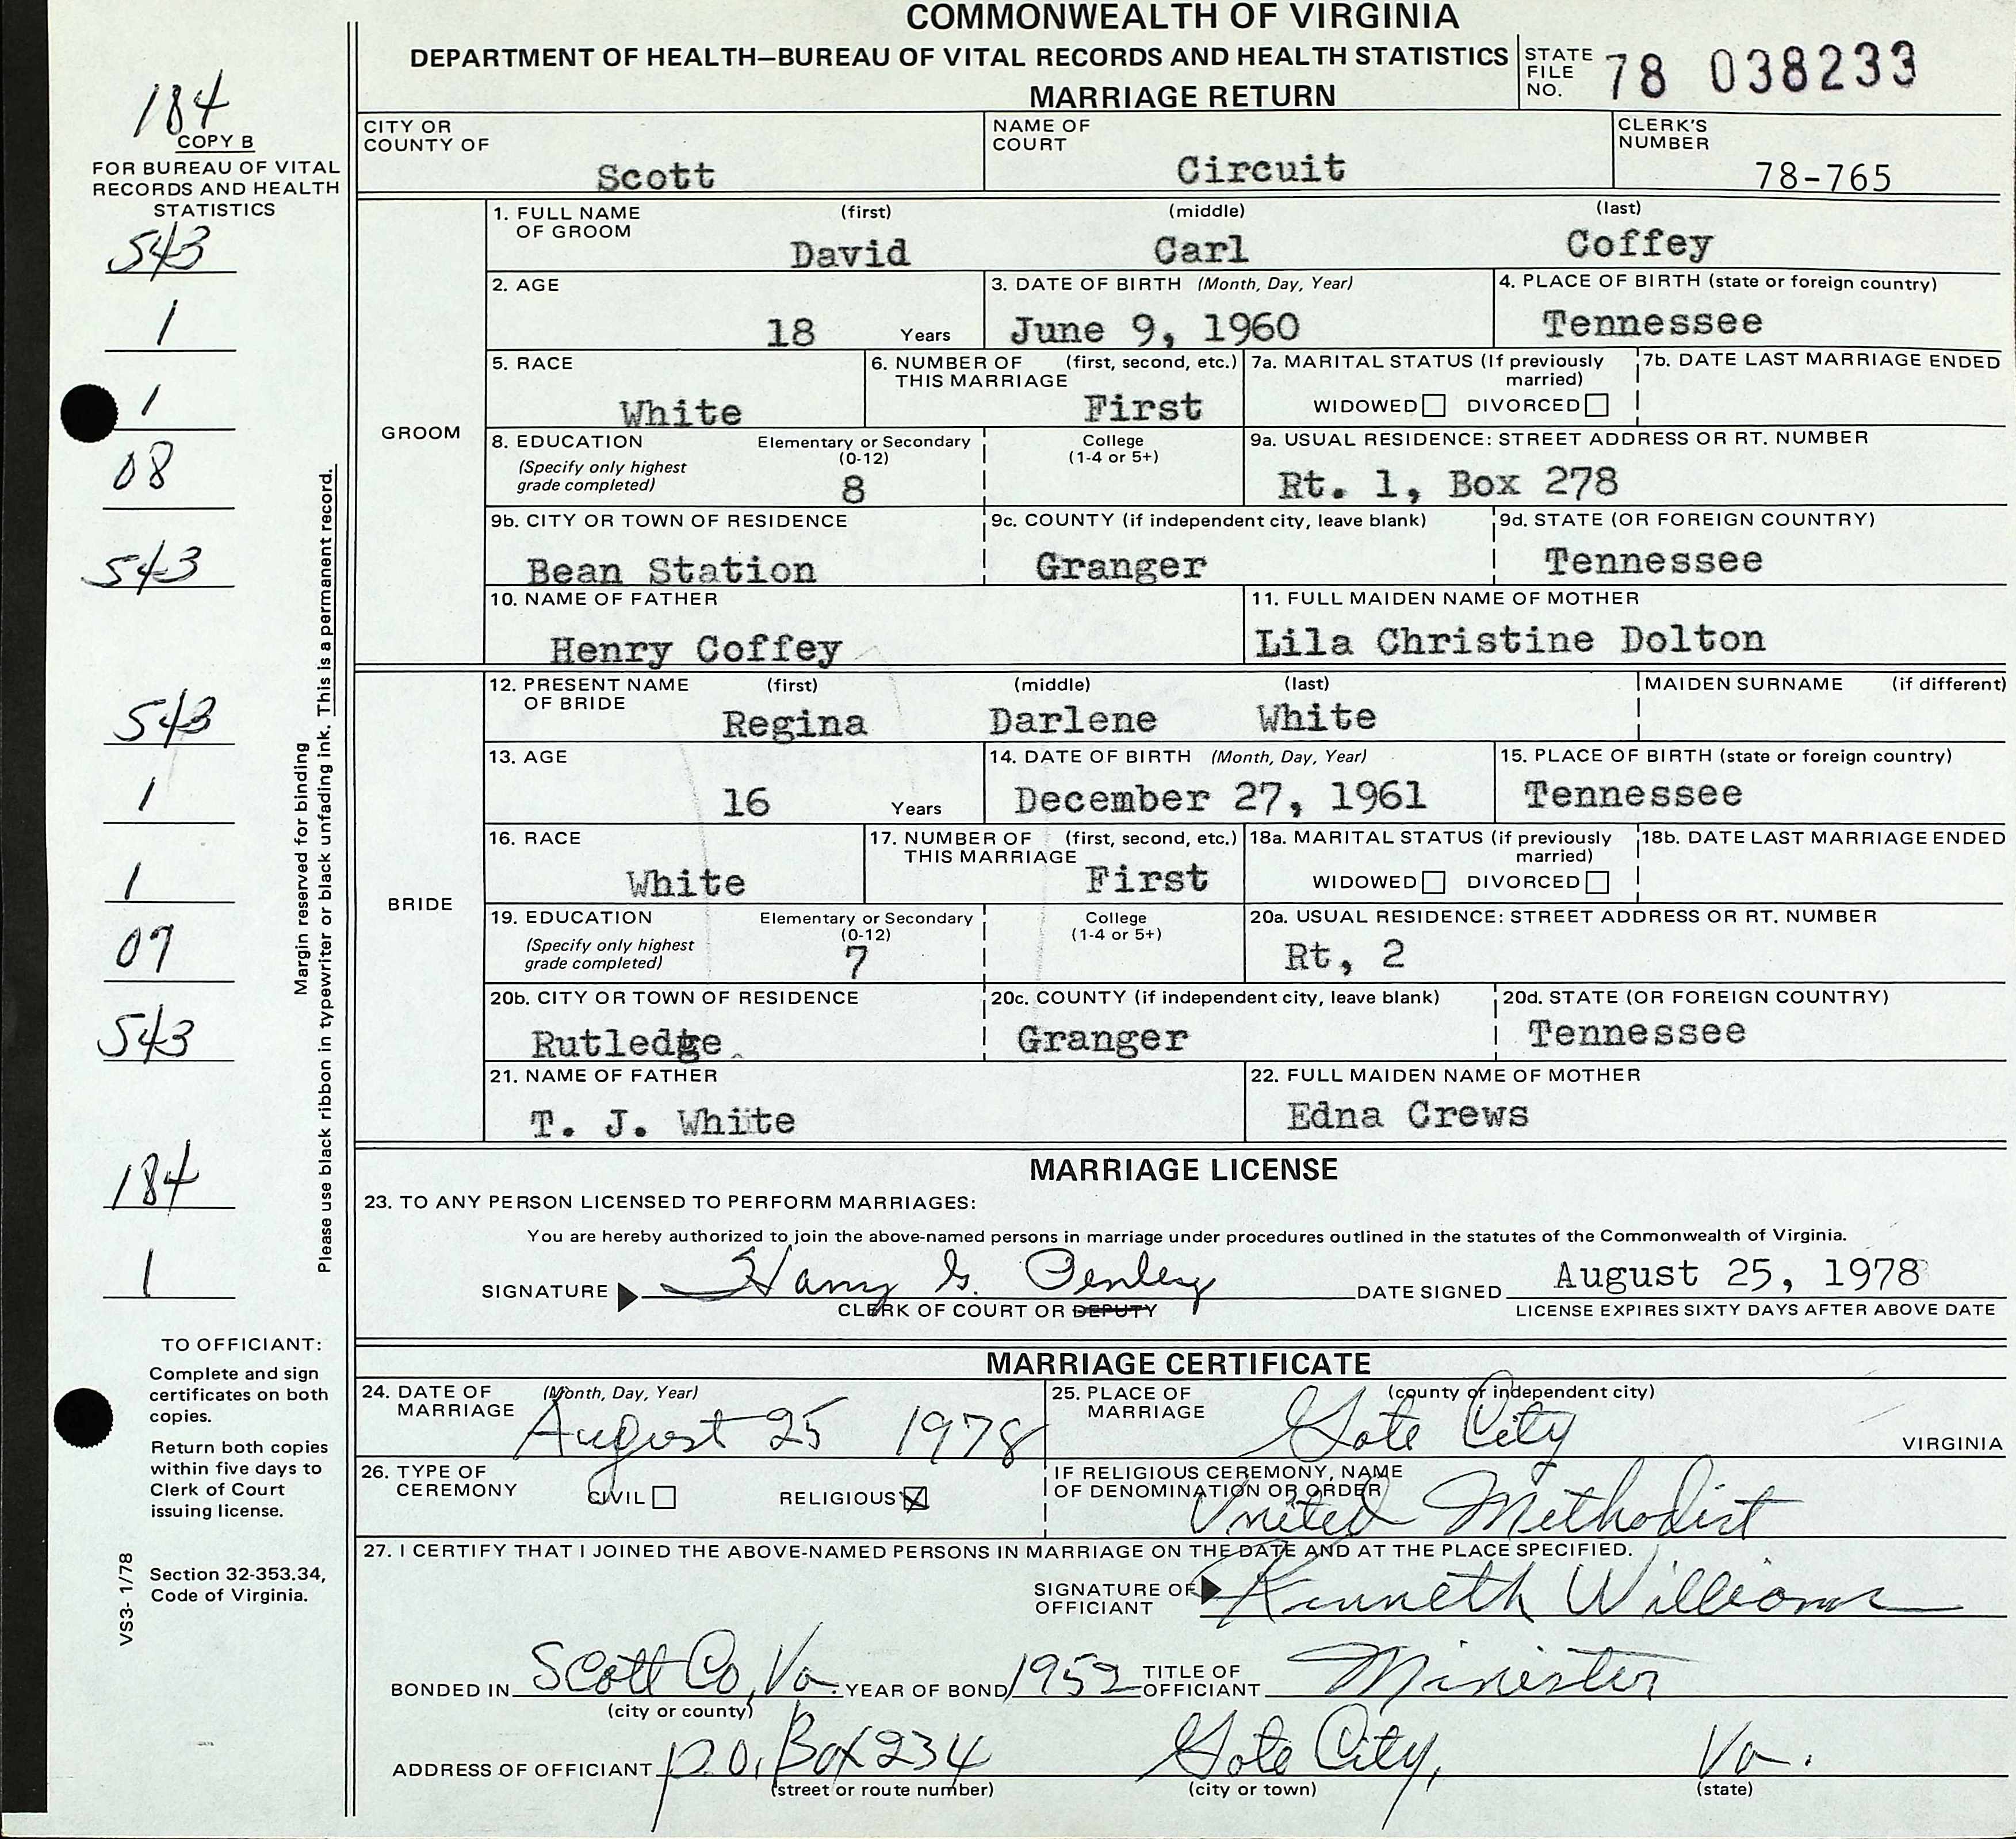 COMMONWEALTH OF VIRGINIA
DEPARTMENT OF HEALTH—BUREAU OF VITAL RECORDS AND HEALTH STATISTICS
MARRIAGE RETURN
STATE FILE NO. 78 038233
184
COPY B
FOR BUREAU OF VITAL
RECORDS AND HEALTH
STATISTICS
543
1
1
08
543
543
1
1
07
543
184
1
Margin reserved for binding
Please use black ribbon in typewriter or black unfading ink. This is a permanent record.
TO OFFICIANT:
Complete and sign
certificates on both
copies.
Return both copies
within five days to
Clerk of Court
issuing license.
Section 32-353.34,
Code of Virginia.
VS3- 1/78
CITY OR COUNTY OF Scott
NAME OF COURT Circuit
CLERK'S NUMBER 78-765
GROOM
1. FULL NAME OF GROOM (first) (middle) (last)
David Carl Coffey
2. AGE 18 Years
3. DATE OF BIRTH (Month, Day, Year) June 9, 1960
4. PLACE OF BIRTH (state or foreign country) Tennessee
5. RACE White
6. NUMBER OF THIS MARRIAGE (first, second, etc.) First
7a. MARITAL STATUS (If previously married) WIDOWED DIVORCED
7b. DATE LAST MARRIAGE ENDED
8. EDUCATION (Specify only highest grade completed) Elementary or Secondary (0-12) 8 College (1-4 or 5+)
9a. USUAL RESIDENCE: STREET ADDRESS OR RT. NUMBER Rt. 1, Box 278
9b. CITY OR TOWN OF RESIDENCE Bean Station
9c. COUNTY (if independent city, leave blank) Granger
9d. STATE (OR FOREIGN COUNTRY) Tennessee
10. NAME OF FATHER Henry Coffey
11. FULL MAIDEN NAME OF MOTHER Lila Christine Dolton
BRIDE
12. PRESENT NAME OF BRIDE (first) (middle) (last) MAIDEN SURNAME (if different)
Regina Darlene White
13. AGE 16 Years
14. DATE OF BIRTH (Month, Day, Year) December 27, 1961
15. PLACE OF BIRTH (state or foreign country) Tennessee
16. RACE White
17. NUMBER OF THIS MARRIAGE (first, second, etc.) First
18a. MARITAL STATUS (if previously married) WIDOWED DIVORCED
18b. DATE LAST MARRIAGE ENDED
19. EDUCATION (Specify only highest grade completed) Elementary or Secondary (0-12) 7 College (1-4 or 5+)
20a. USUAL RESIDENCE: STREET ADDRESS OR RT. NUMBER Rt, 2
20b. CITY OR TOWN OF RESIDENCE Rutledge
20c. COUNTY (if independent city, leave blank) Granger
20d. STATE (OR FOREIGN COUNTRY) Tennessee
21. NAME OF FATHER T. J. White
22. FULL MAIDEN NAME OF MOTHER Edna Crews
MARRIAGE LICENSE
23. TO ANY PERSON LICENSED TO PERFORM MARRIAGES:
You are hereby authorized to join the above-named persons in marriage under procedures outlined in the statutes of the Commonwealth of Virginia.
SIGNATURE Harry G. Penley DATE SIGNED August 25, 1978
CLERK OF COURT OR DEPUTY LICENSE EXPIRES SIXTY DAYS AFTER ABOVE DATE
MARRIAGE CERTIFICATE
24. DATE OF MARRIAGE (Month, Day, Year) August 25 1978
25. PLACE OF MARRIAGE (county or independent city) Gate City VIRGINIA
26. TYPE OF CEREMONY CIVIL RELIGIOUS X
IF RELIGIOUS CEREMONY, NAME OF DENOMINATION OR ORDER United Methodist
27. I CERTIFY THAT I JOINED THE ABOVE-NAMED PERSONS IN MARRIAGE ON THE DATE AND AT THE PLACE SPECIFIED.
SIGNATURE OF OFFICIANT Kenneth Williams
BONDED IN Scott Co, Va. YEAR OF BOND 1952 TITLE OF OFFICIANT Minister
(city or county)
ADDRESS OF OFFICIANT P.O. Box 234 Gate City, Va.
(street or route number) (city or town) (state)